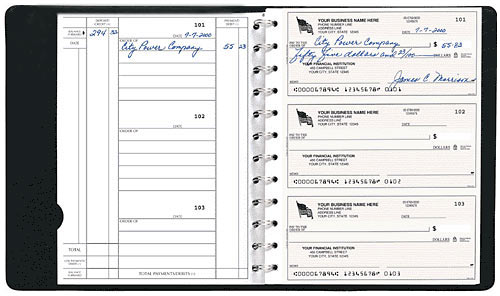 DEPOSIT/
CREDIT (+)
101
PAYMENT/
DEBIT (-)
294 32
DATE 7-7-2000
DATE
ORDER OF City Power Company 55 23
102
DATE
ORDER OF
103
DATE
ORDER OF
TOTAL
TOTAL PAYMENT/DEBITS (-)
YOUR BUSINESS NAME HERE
PHONE NUMBER LINE
ADDRESS LINE
YOUR CITY, STATE 12345
101
7-7-2000
City Power Company $ 55.23
fifty five dollars and 23/100 DOLLARS
YOUR FINANCIAL INSTITUTION
450 CAMPBELL STREET
YOUR CITY, STATE 12345
James C. Morrison
MEMO
⑈000006789⑈ ⑆12345678⑈ 0101
YOUR BUSINESS NAME HERE
PHONE NUMBER LINE
ADDRESS LINE
YOUR CITY, STATE 12345
102
DATE
PAY TO THE
ORDER OF $
DOLLARS
YOUR FINANCIAL INSTITUTION
450 CAMPBELL STREET
YOUR CITY, STATE 12345
MEMO
⑈000006789⑈ ⑆12345678⑈ 0102
YOUR BUSINESS NAME HERE
PHONE NUMBER LINE
ADDRESS LINE
YOUR CITY, STATE 12345
103
DATE
PAY TO THE
ORDER OF $
DOLLARS
YOUR FINANCIAL INSTITUTION
450 CAMPBELL STREET
YOUR CITY, STATE 12345
MEMO
⑈000006789⑈ ⑆12345678⑈ 0103